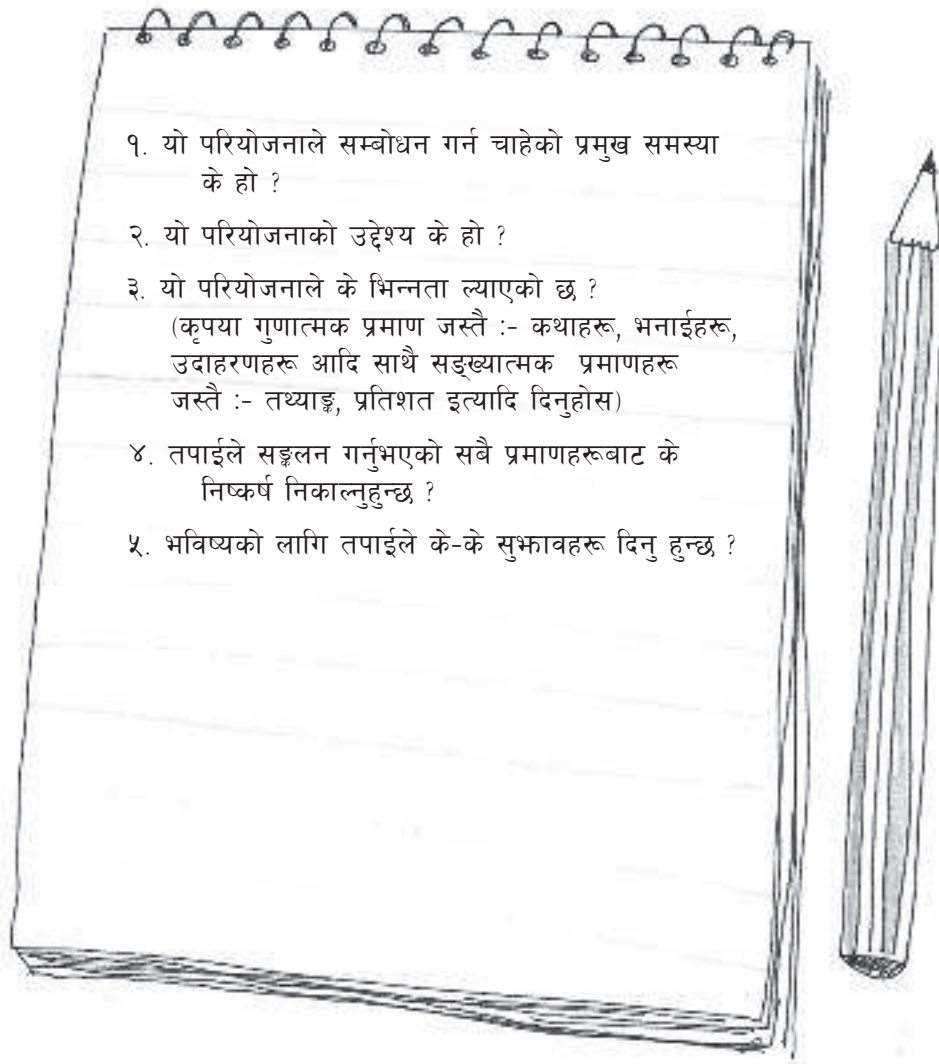 १. यो परियोजनाले सम्बोधन गर्न चाहेको प्रमुख समस्या
के हो ?
२. यो परियोजनाको उद्देश्य के हो ?
३. यो परियोजनाले के भिन्नता ल्याएको छ ?
(कृपया गुणात्मक प्रमाण जस्तै :- कथाहरू, भनाईहरू,
उदाहरणहरू आदि साथै सङ्ख्यात्मक प्रमाणहरू
जस्तै :- तथ्याङ्क, प्रतिशत इत्यादि दिनुहोस)
४. तपाईले सङ्कलन गर्नुभएको सबै प्रमाणहरूबाट के
निष्कर्ष निकाल्नुहुन्छ ?
५. भविष्यको लागि तपाईले के-के सुझावहरू दिनु हुन्छ ?